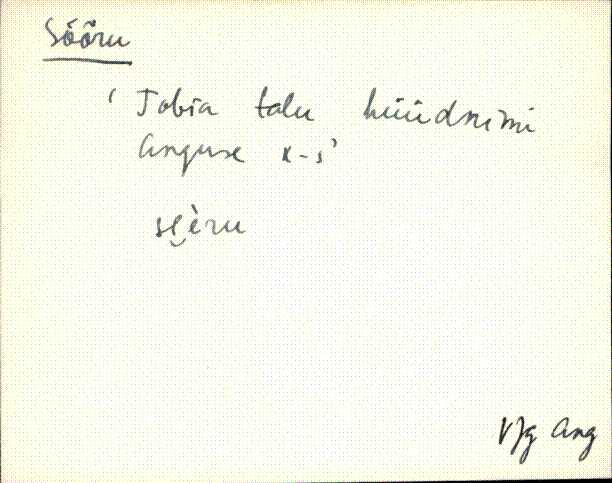 Sõõru
'Tobia talu hüüdnimi
Anguse k-s'
se̮èru
VJg Ang